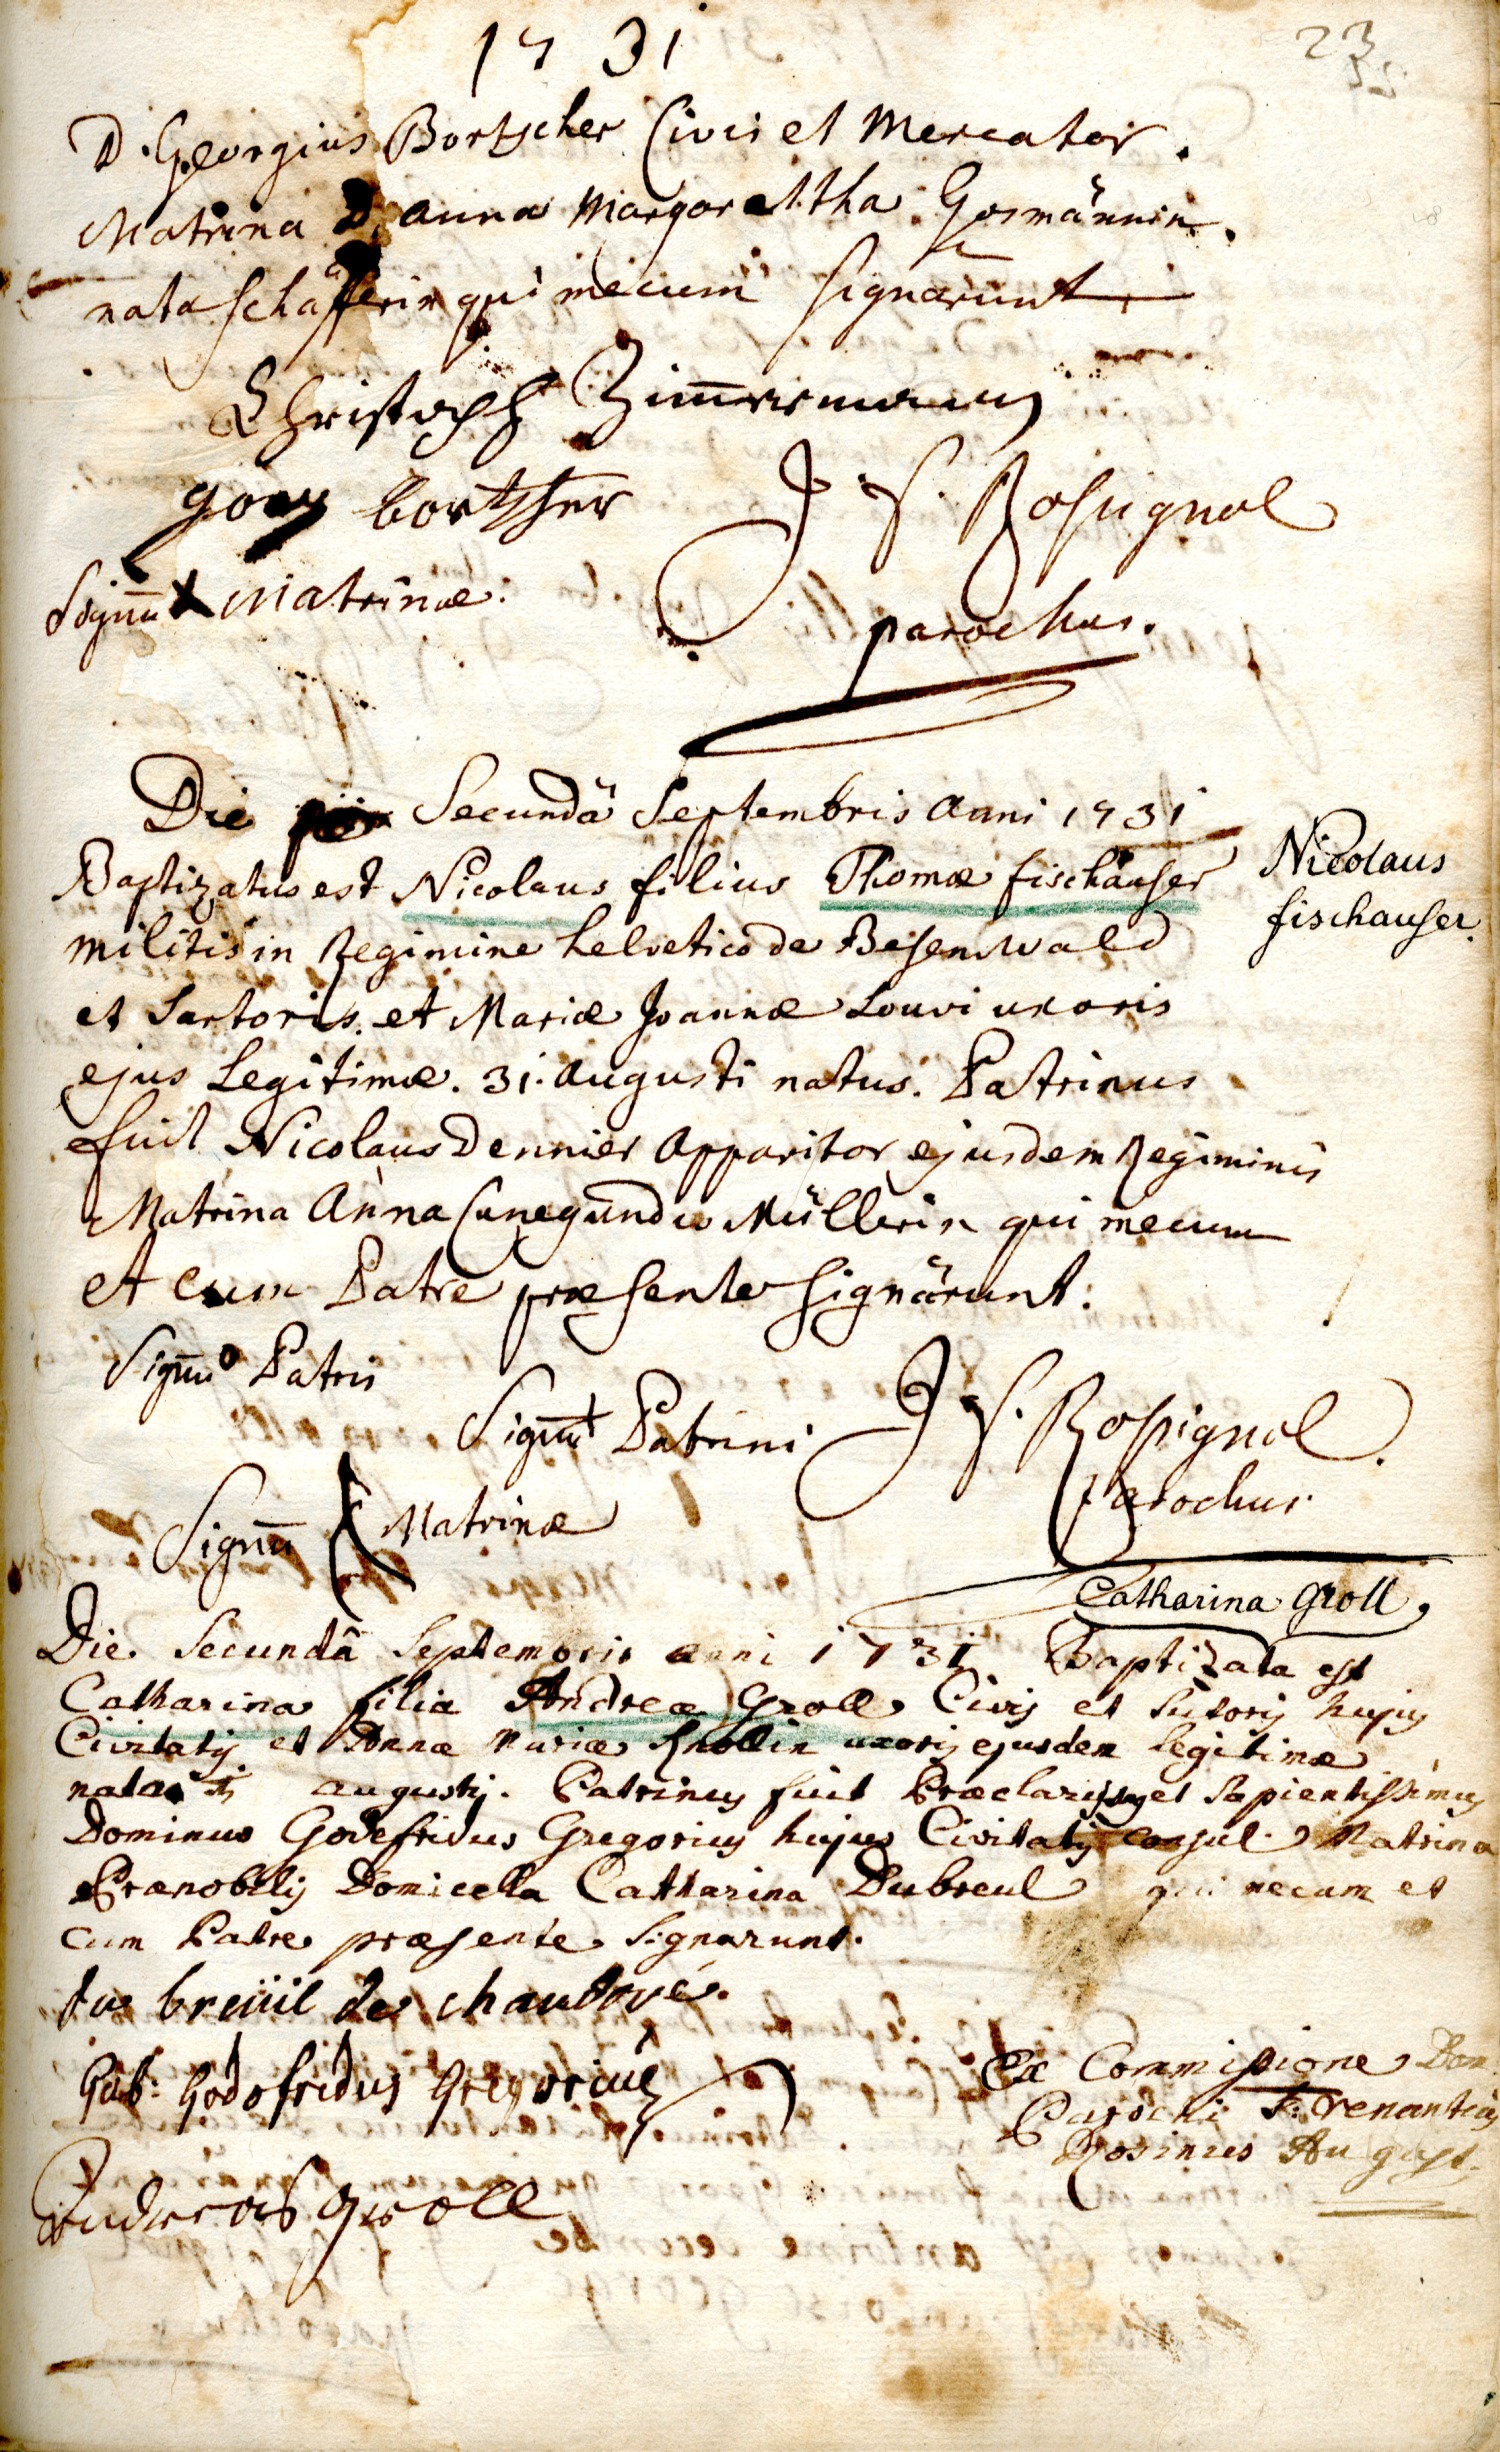 1731
23
D. Georgius Bortscher Civis et Mercator.
Matrina D. anna Margaretha Gosmännin.
nata schäfferin qui mecum signarunt
Christoph Zimmermann
görg bortscher
J S. Rossignol
Signū x Matrinæ.
parochus.
Die Secundâ Septembris anni 1731
Baptizatus est Nicolaus filius Thomæ fischäuser
Nicolaus
fischauser.
militis in Regimine helvetico de Besenwald
et Sartoris. et Mariæ Joannæ Louvi uxoris
ejus Legitimæ. 31. augusti natus. Patrinus
fuit Nicolaus Dennier Apparitor ejusdem Regiminis
Matrina Anna Cunegunda Müllerin qui mecum
et cum Patre præsente signârunt.
Signū o Patris
Signū + Patrini
J S. Rossignol.
Parochus.
Signū Matrinæ
Catharina Groll.
Die Secundâ Septembris anni 1731 Baptizata est
Catharina filia Andreæ Groll Civis et Sutoris hujus
Civitatis et Annæ Mariæ Knollin uxoris ejusdem legitimæ
nata augusti. Patrinus fuit Præclarissimus et Sapientissimus
Dominus Godefridus Gregorius hujus Civitatis consul. Matrina
Prænobilis Domicella Catharina Dubreul qui mecum et
cum Patre præsente Signarunt.
du breüil de chantoré.
Gab: Godofridus Gregorius
Ex Commissione Dom.
Parochi F: Venantius
Rosinus August.
Andreas groll